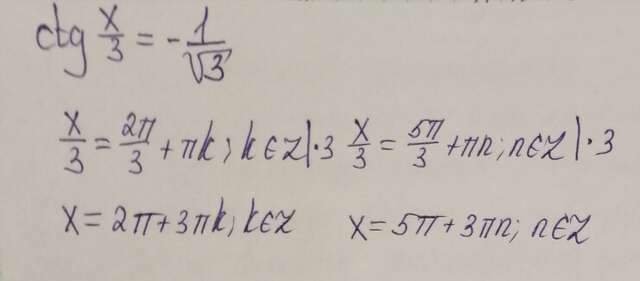 ctg x/3 = -1/√3
x/3 = 2π/3 + πk; k∈Z |·3 x/3 = 5π/3 + πn; n∈Z |·3
x = 2π + 3πk; k∈Z x = 5π + 3πn; n∈Z